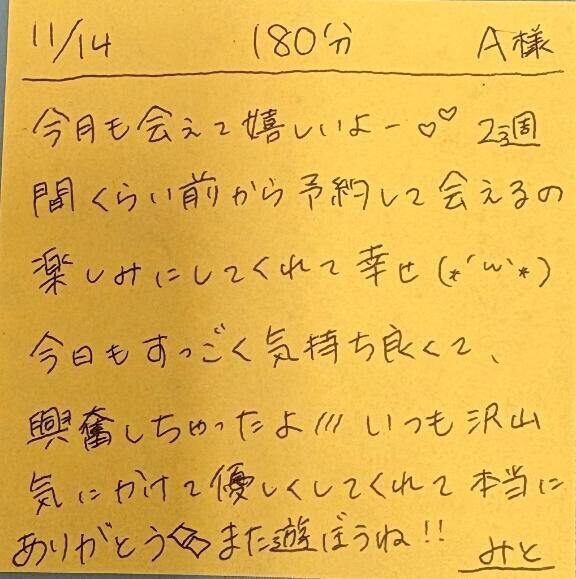 11/14 180分 A様
今月も会えて嬉しいよー♡♡ 2週
間くらい前から予約して会えるの
楽しみにしてくれて幸せ(*´ω`*)
今日もすっごく気持ち良くて、
興奮しちゃったよ/// いつも沢山
気にかけて優しくしてくれて本当に
ありがとう また遊ぼうね!!
みと